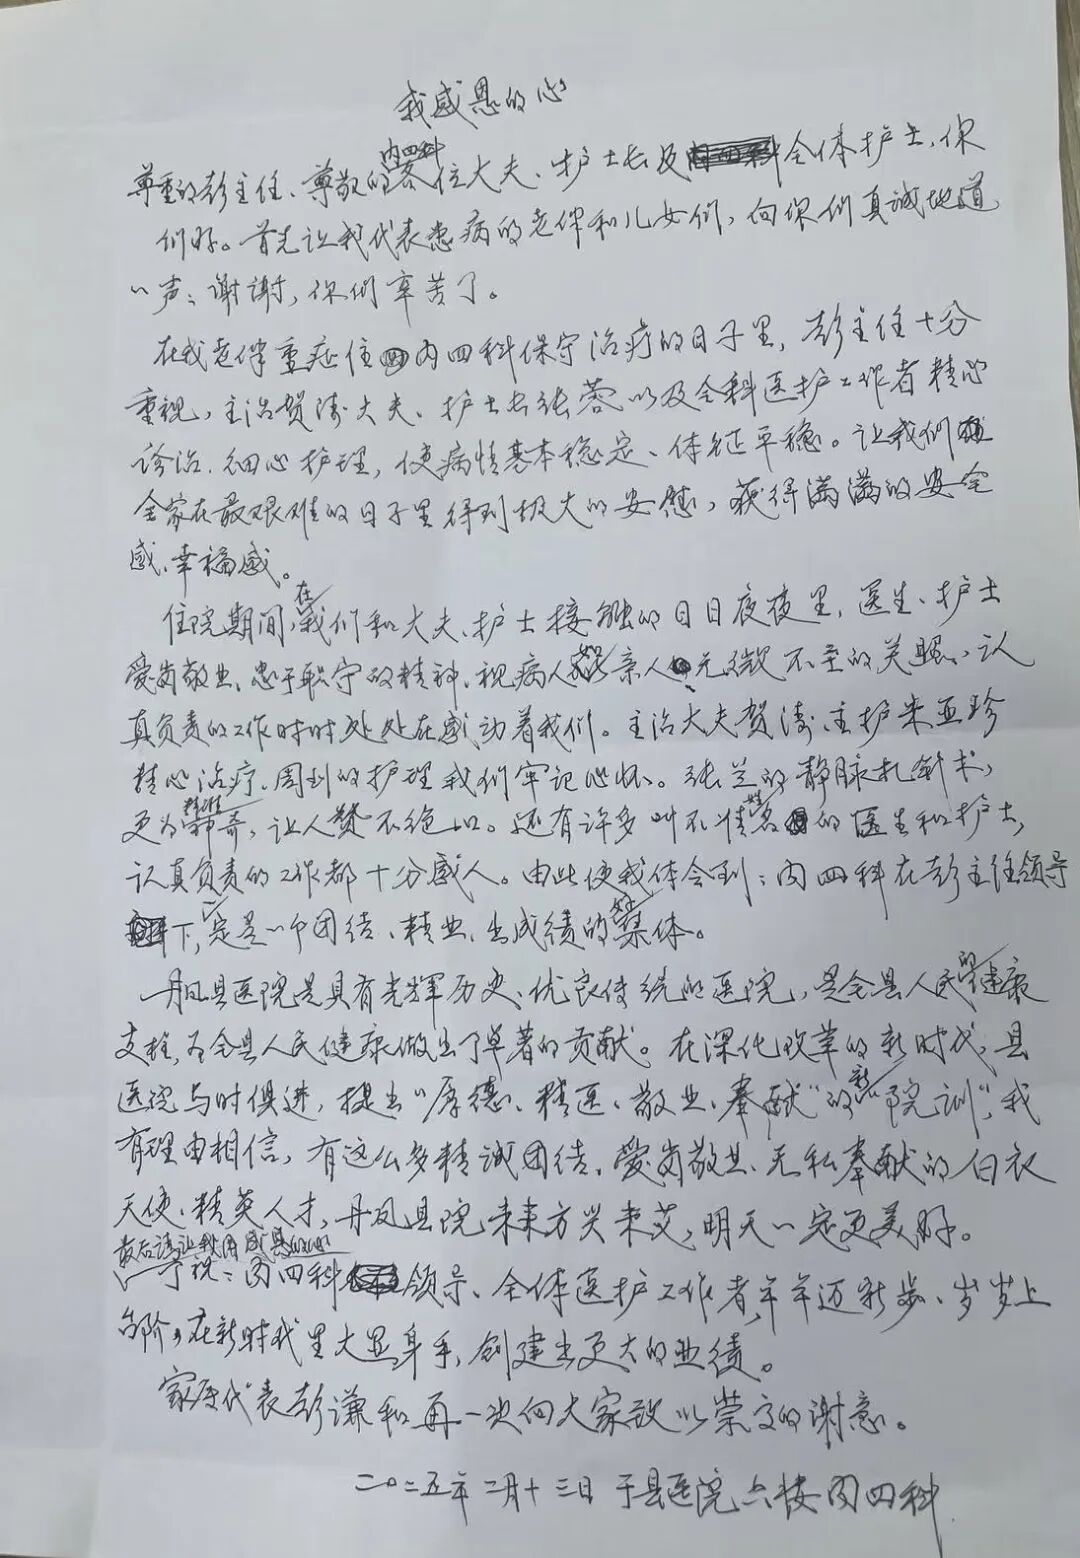 我感恩的心
尊重的彭主任、尊敬的内四科各位大夫、护士长及全体护士，你
们好。首先让我代表患病的老伴和儿女们，向你们真诚地道
一声：谢谢，你们辛苦了。
在我老伴重症住内四科保守治疗的日子里，彭主任十分
重视，主治贺涛大夫、护士长张蓉以及全科医护工作者精心
诊治.细心护理，使病情基本稳定、体征平稳。让我们
全家在最艰难的日子里得到极大的安慰，获得满满的安全
感、幸福感。
住院期间，在我们和大夫、护士接触的日日夜夜里，医生、护士
爱岗敬业、忠于职守的精神、视病人亲人无微不至的关照、认
真负责的工作时时处处在感动着我们。主治大夫贺涛、主护朱亚珍
精心治疗、周到的护理我们牢记心怀。张兰的静脉扎针术，
更为精准神奇，让人赞不绝口。还有许多叫不清姓名的医生和护士，
认真负责的工作都十分感人。由此使我体会到：内四科在彭主任领导
下，一定是一个团结、精业、出成绩的集体。
丹凤县医院是具有光辉历史、优良传统的医院，是全县人民的健康
支柱，为全县人民健康做出了卓著的贡献。在深化改革的新时代，县
医院与时俱进，提出“厚德、精医、敬业、奉献”的新“院训”，我
有理由相信，有这么多精诚团结、爱岗敬业、无私奉献的白衣
天使、精英人才，丹凤县院未来方兴未艾，明天一定更美好。
最后请让我用感恩的心
予祝：内四科领导、全体医护工作者年年迈新步、岁岁上
台阶，在新时代里大显身手，创建出更大的业绩。
家属代表彭谦和再一次向大家致以崇高的谢意。
二〇二五年二月十三日于县医院六楼内四科